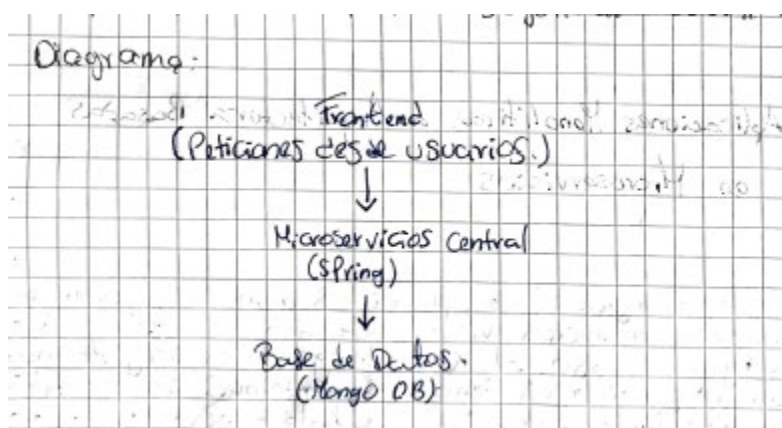 Diagrama:
Frontend
(Peticiones desde usuarios.)
Microservicios Central
(Spring)
Base de Datos.
(Mongo DB)